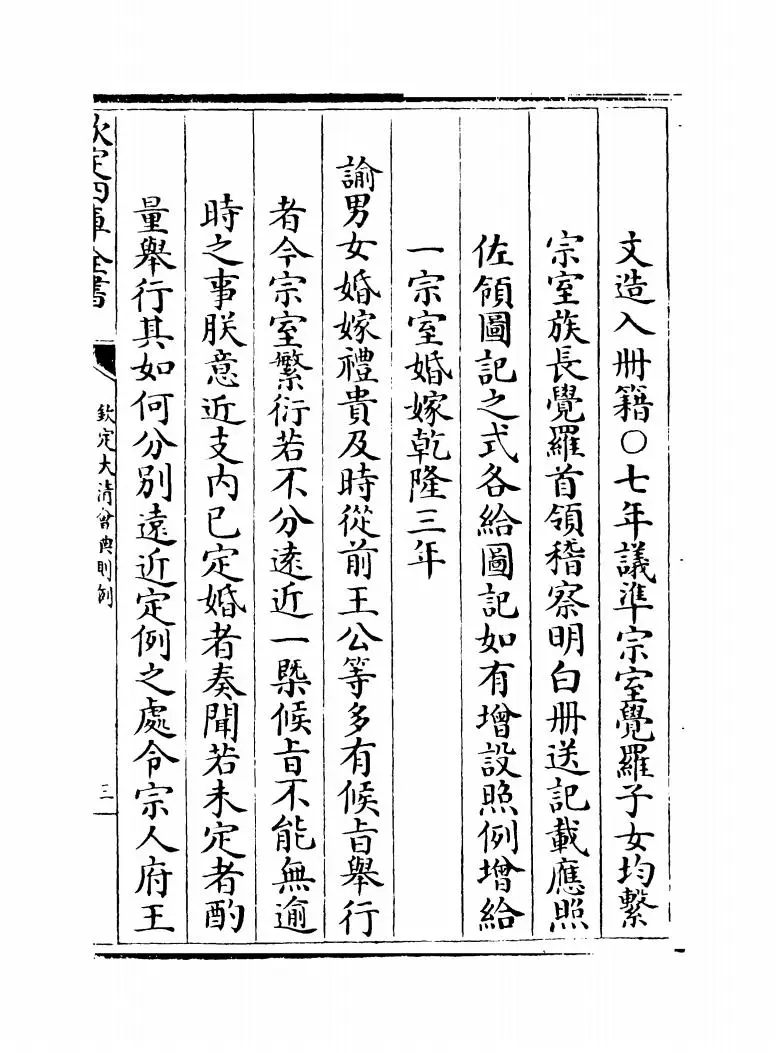 文造入冊籍○七年議準宗室覺羅子女均繫
宗室族長覺羅首領稽察明白冊送記載應照
佐領圖記之式各給圖記如有增設照例增給
一宗室婚嫁乾隆三年
諭男女婚嫁禮貴及時從前王公等多有候旨舉行
者今宗室繁衍若不分遠近一槩候旨不能無逾
時之事朕意近支內已定婚者奏聞若未定者酌
量舉行其如何分別遠近定例之處令宗人府王
欽定四庫全書
欽定大清會典則例
三